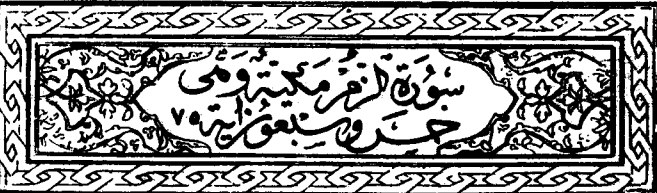 سُورَة الزُّمَر مَكِّيَّة وَهِىَ
خمس وسبعون آية ٧٥